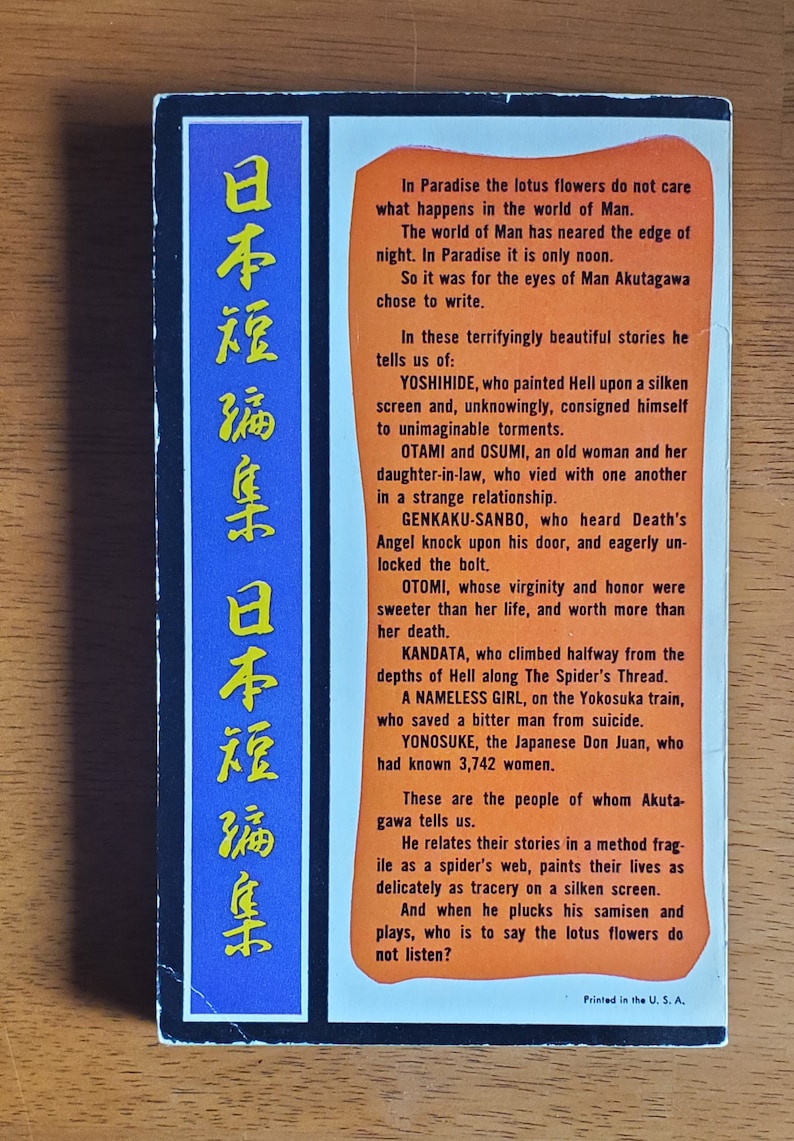 日本短編集日本短編集
In Paradise the lotus flowers do not care
what happens in the world of Man.
The world of Man has neared the edge of
night. In Paradise it is only noon.
So it was for the eyes of Man Akutagawa
chose to write.
In these terrifyingly beautiful stories he
tells us of:
YOSHIHIDE, who painted Hell upon a silken
screen and, unknowingly, consigned himself
to unimaginable torments.
OTAMI and OSUMI, an old woman and her
daughter-in-law, who vied with one another
in a strange relationship.
GENKAKU-SANBO, who heard Death's
Angel knock upon his door, and eagerly un-
locked the bolt.
OTOMI, whose virginity and honor were
sweeter than her life, and worth more than
her death.
KANDATA, who climbed halfway from the
depths of Hell along The Spider's Thread.
A NAMELESS GIRL, on the Yokosuka train,
who saved a bitter man from suicide.
YONOSUKE, the Japanese Don Juan, who
had known 3,742 women.
These are the people of whom Akuta-
gawa tells us.
He relates their stories in a method frag-
ile as a spider's web, paints their lives as
delicately as tracery on a silken screen.
And when he plucks his samisen and
plays, who is to say the lotus flowers do
not listen?
Printed in the U. S. A.